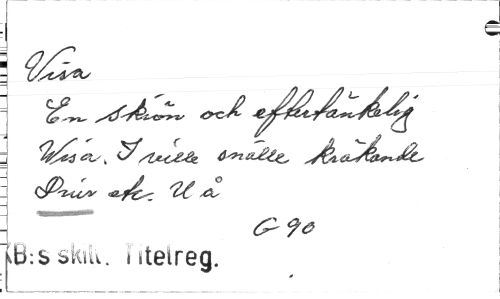 Visa
En skiön och eftertänkelig
Wisa. I ville snälle kräkande
Diur etc. U å
G 90
KB:s skill. Titelreg.